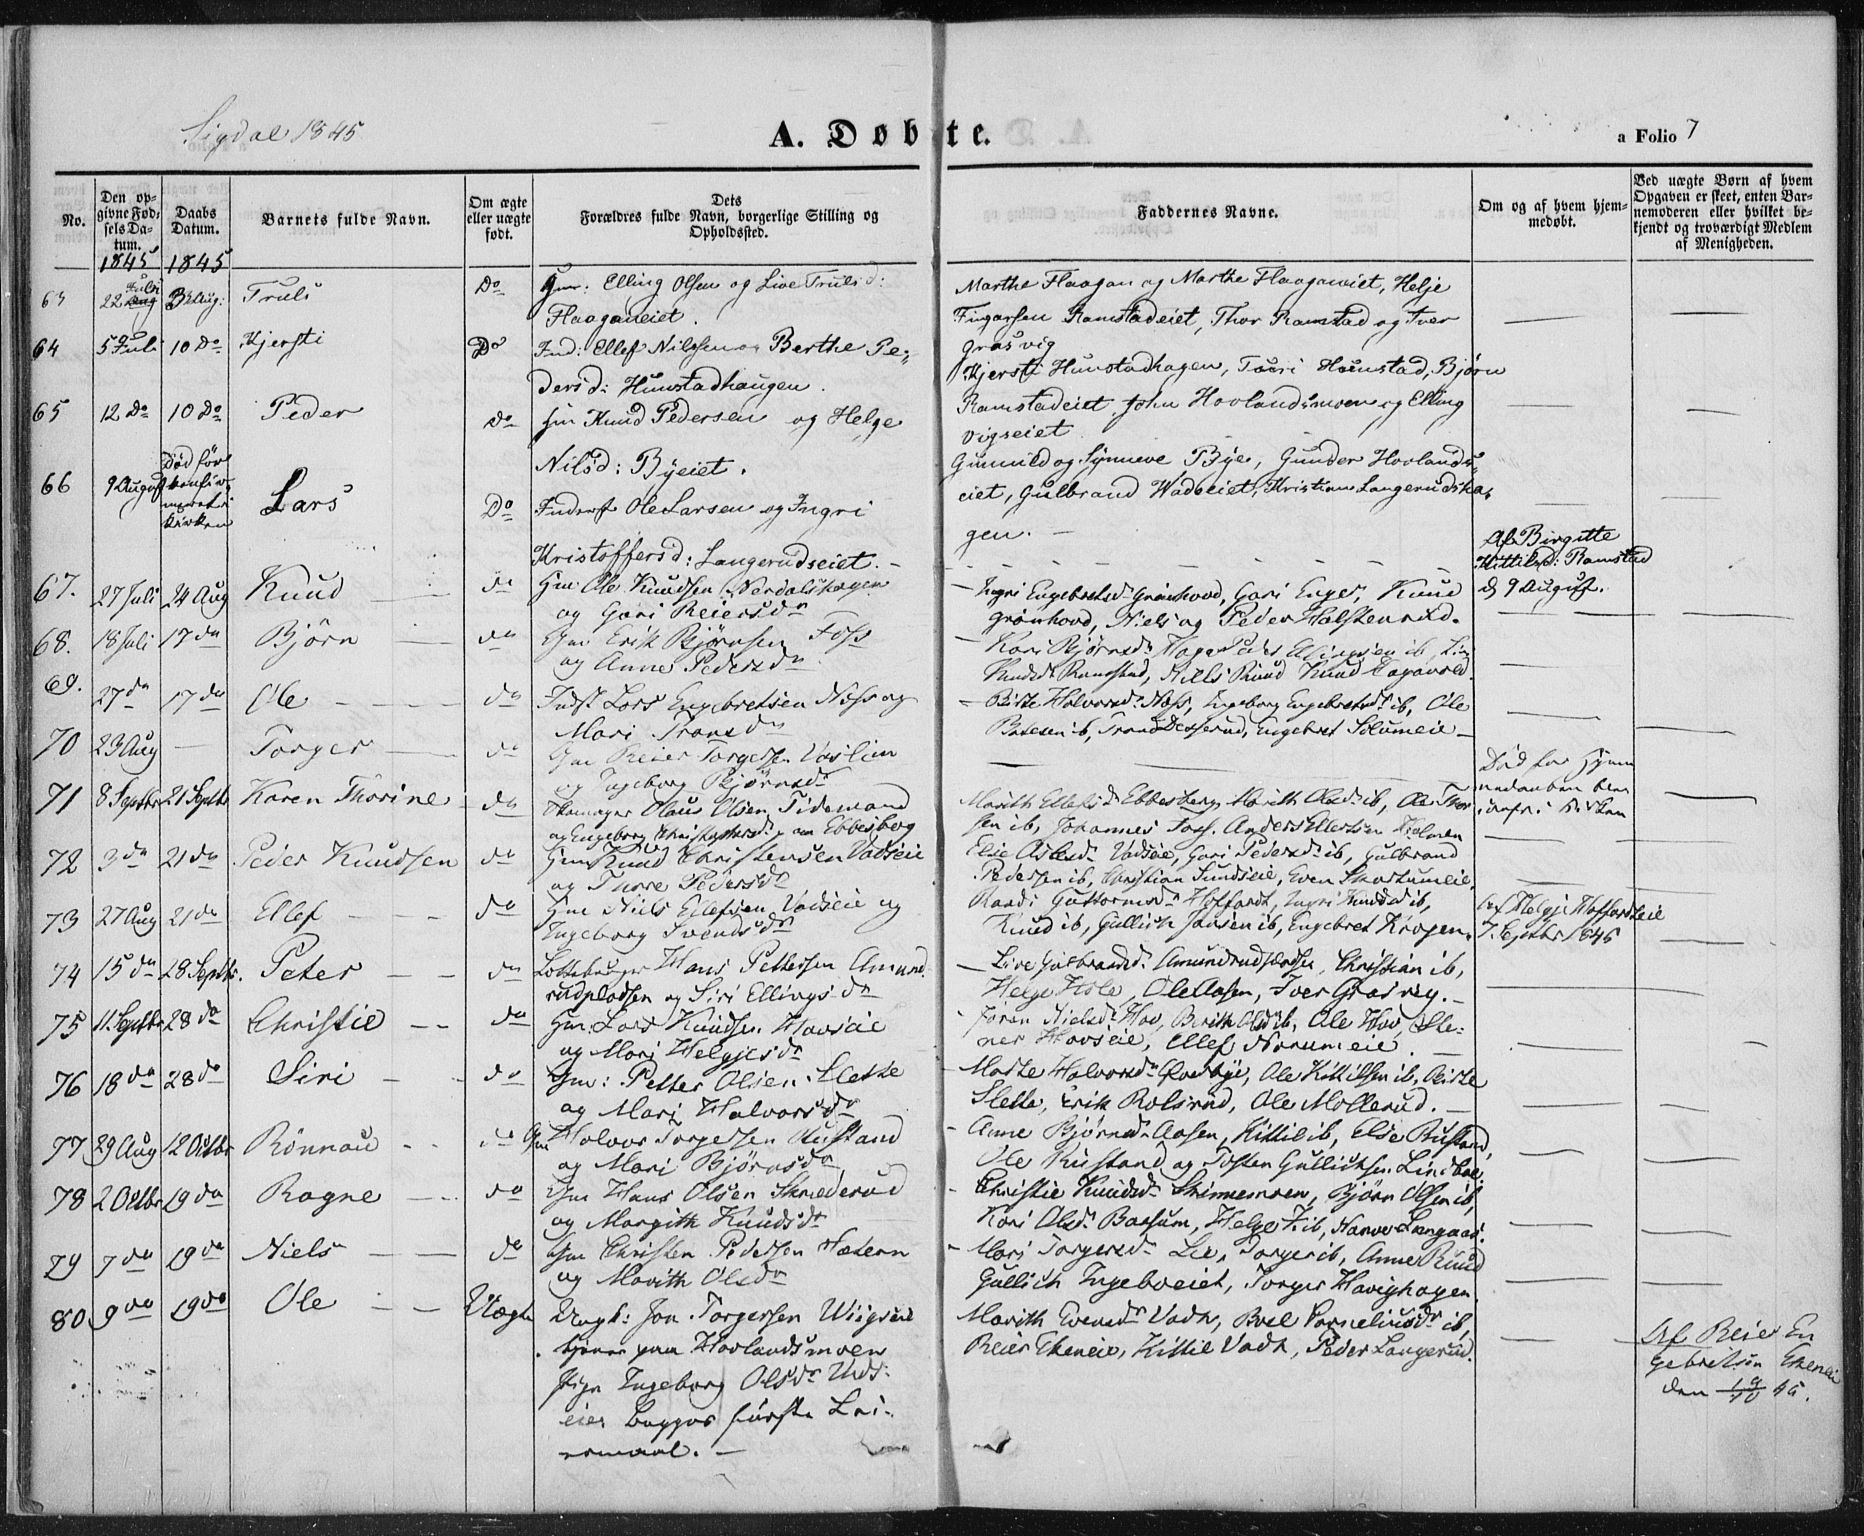 Sigdal 1845
A. Døbte.
a Folio 7
No.
Den opgivne Fødsels Datum.
Daabs Datum.
Barnets fulde Navn.
Om ægte eller uægte født.
Dets Forældres fulde Navn, borgerlige Stilling og Opholdssted.
Faddernes Navne.
Om og af hvem hjemmedøbt.
Ved uægte Børn af hvem Opgaven er skeet, enten Barnemoderen eller hvilket bekjendt og troværdigt Medlem af Menigheden.
1845 1845
63 22 Juli 3 Aug: Truls Do Gmr: Elling Olsen og Live Trulsd:
Flaaganeiet.
Marthe Flaagan og Marthe Flaaganeiet, Helje
Fingarsen Ramstadeiet, Thor Ramstad og Iver
Grasvig
64 5 Juli 10 Do Kjersti Do Ind: Ellef Nilssen og Berthe Pe-
dersd: Hunstadhaugen.
Kjersti Hunstadhagen, Tuori Hunstad, Bjørn
Ramstadeiet, John Hovlandsmoen og Elling
Vigseiet
65 12 Do 10 Do Peder Do Gm Knud Pedersen og Helge
Nilsd: Byeiet.
Gunnild og Synneve Bye, Gunder Hovlands-
eiet, Gulbrand Vadseiet, Kristian Langerudsha-
gen. -
66 9 August Død før
Lars Do Inderst Ole Larsen og Ingri
Kristoffersd: Langerudseiet. -
Af Birgitte
Kittilsd: Ramstad
d 9 August.
67. 27 Juli 24 Aug Knud do Gm: Ole Knudsen Nerdalshagen
og Gøri Reiersdr
Ingri Engebretsdr Grønhovd, Gøri Enger, Knud
Grønhovd, Niels og Peder Halstenrud.
68. 18 Juli 17 do Bjørn do Gm Erik Bjørnsen Foss
og Anne Pedersdr
Kari Bjørnsdr Hage, Peder Ellingsen ib, Liv
Knudsdr Ramstad, Niels Ruud, Knud Hagavold.
69. 27 do 17 do Ole do Indst Lars Engebretsen Næss og
Mari Transdr
Birte Halvorsdr Næss, Ingeborg Engebretsdr ib, Ole
ib, Trand Desserud, Engebret Solumeie
70 23 Aug - Torger do Gm Reier Torgersen Vaslien
og Ingeborg Bjørnsdr
Død før Hjem
71 8 Septbr 21 Septbr Karen Thorine do Skomager Olaus Olsen Tidemand
og Engeborg Christophersdr paa Ebbesberg
Marith Ellefsdr Ebbesberg, Marith Olsdr ib, Ole Thor
sen ib, Johannes Foss, Anders Ellertsen Holmen
72 3 do 21 do Peder Knudsen do Gm Knud Christensen Vadseie
og Thore Pedersdr
Elie Aslesdr Vadseie, Gøri Pedersdr ib, Gulbrand
Pedersen ib, Christian Sundseie, Even Skartumeie
73 27 Aug 21 do Ellef do Gm Niels Ellefsen Vadseie og
Ingeborg Svendsdr
Randi Guttormsdr Hoffardt, Ingri Knudsdr ib,
Knud ib, Gullich Jansen ib, Engebret Krogen.
Af Helgje Hoffardteie
7 Septbr 1845
74 15 do 28 Septbr. Peter do Lottebruger Hans Pettersen Amund-
rudpladsen og Siri Ellingsdr
Live Gulbrandsdr Amundrudpladsen, Christian ib,
Helge Hole, Ole Aasen, Iver Grasvig. -
75 11 Septbr 28 do Christie do Gm: Lars Knudsen Hovseie
og Mari Helgjesdr
Jøran Nielsdr Hov, Berith Olsdr ib, Ole Hov, Ste-
ner Hovseie, Ellef Narumeie
76 18 do 28 do Siri do Gm: Petter Olsen Slette
og Mari Halvorsdr
Marte Halvorsdr Qvelbye, Ole Kittilsen ib, Birte
Slette, Erik Rolsrud, Ole Mollerud. -
77 29 Aug 12 Octbr Rønnau do Gm Halvor Torgersen Rustand
og Mari Bjørnsdr
Anne Bjørnsdr Aasen, Kittil ib, Else Rustand,
Ole Rustand og Tosten Gullichsen Lindboe.
78 2 Octbr 19 do Ragne do Gm Hans Olsen Skrederud
og Margith Knudsdr
Christie Knudsdr Skinnemoen, Bjørn Olsen ib,
Kari Olsdr Baasum, Helge ib, Langaas.
79 7 do 19 do Niels do Gm Christen Pedersen Hætern
og Marith Olsdr
Mari Torgersdr Lie, Torger ib, Anne Ruud
Gullich Ingeboeiet, Torger Havighagen.
80 9 do 19 do Ole Uægte Ungk: Jon Torgersen Wiigseie
tjener paa Hovlandsmoen
Pige Ingeborg Olsdr Vads-
eiet Begges første Lei-
ermaal. -
Marith Evensdr Vadh, Boel Cornelius dr ib,
Reier Ekeneie, Kittil Vadh, Peder Langerud.
Af Reier En
gebretsøn Ekeneie
den 19/10 45.